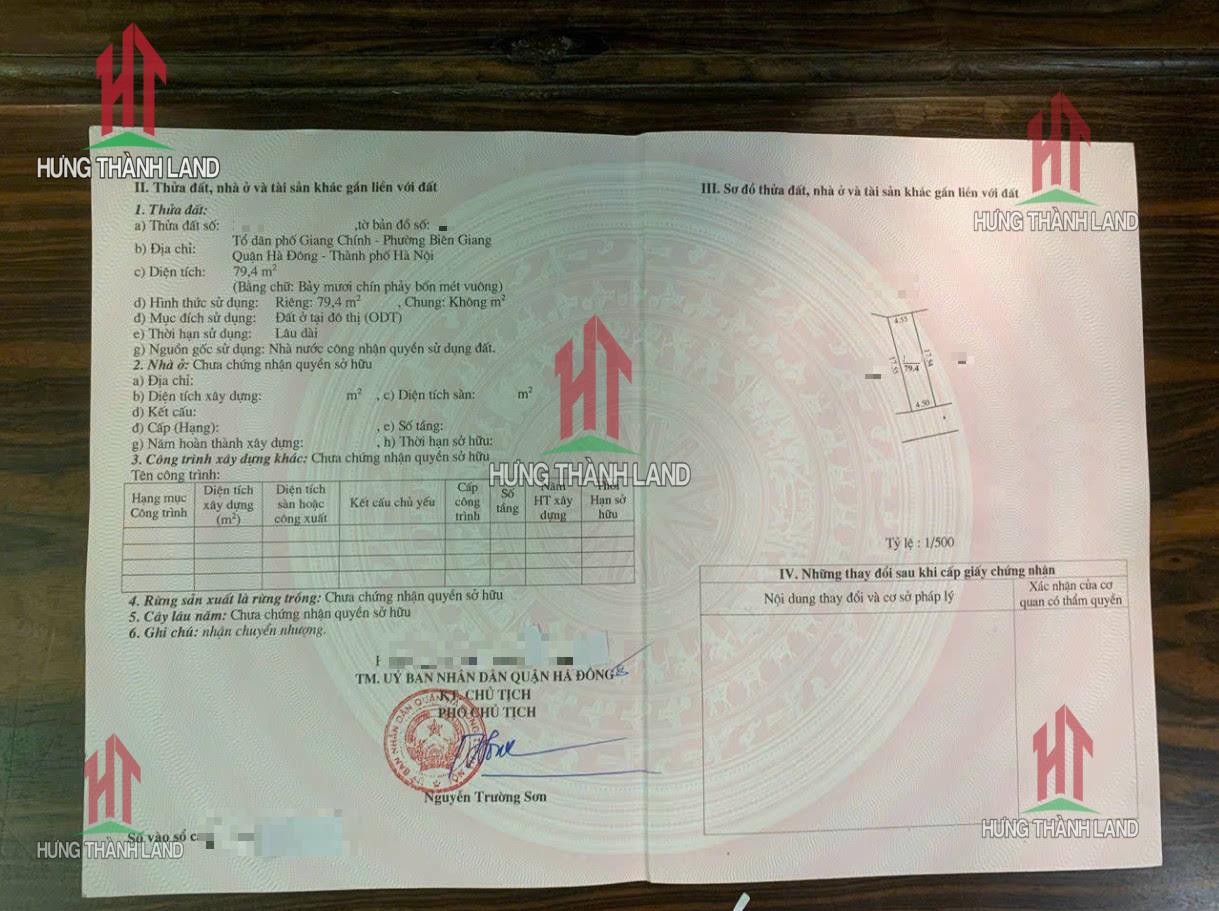 HƯNG THÀNH LAND
II. Thửa đất, nhà ở và tài sản khác gắn liền với đất
1. Thửa đất:
a) Thửa đất số: ,tờ bản đồ số:
b) Địa chỉ: Tổ dân phố Giang Chính - Phường Biên Giang
Quận Hà Đông - Thành phố Hà Nội
c) Diện tích: 79,4 m²
(Bằng chữ: Bảy mươi chín phảy bốn mét vuông)
d) Hình thức sử dụng: Riêng: 79,4 m² , Chung: Không m²
đ) Mục đích sử dụng: Đất ở tại đô thị (ODT)
e) Thời hạn sử dụng: Lâu dài
g) Nguồn gốc sử dụng: Nhà nước công nhận quyền sử dụng đất.
2. Nhà ở: Chưa chứng nhận quyền sở hữu
a) Địa chỉ:
b) Diện tích xây dựng: m² , c) Diện tích sàn: m²
d) Kết cấu:
đ) Cấp (Hạng): , e) Số tầng:
g) Năm hoàn thành xây dựng: , h) Thời hạn sở hữu:
3. Công trình xây dựng khác: Chưa chứng nhận quyền sở hữu
Tên công trình:
Hạng mục Công trình
Diện tích xây dựng (m²)
Diện tích sàn hoặc công xuất
Kết cấu chủ yếu
Cấp công trình
Số tầng
Năm HT xây dựng
Thời Hạn sở hữu
4. Rừng sản xuất là rừng trồng: Chưa chứng nhận quyền sở hữu
5. Cây lâu năm: Chưa chứng nhận quyền sở hữu
6. Ghi chú: nhận chuyển nhượng.
TM. UỶ BAN NHÂN DÂN QUẬN HÀ ĐÔNG
KT. CHỦ TỊCH
PHÓ CHỦ TỊCH
Nguyễn Trường Sơn
Số vào sổ c
HƯNG THÀNH LAND
HƯNG THÀNH LAND
III. Sơ đồ thửa đất, nhà ở và tài sản khác gắn liền với đất
HƯNG THÀNH LAND
4.55
17.55
79.4
17.54
4.50
Tỷ lệ : 1/500
IV. Những thay đổi sau khi cấp giấy chứng nhận
Nội dung thay đổi và cơ sở pháp lý
Xác nhận của cơ quan có thẩm quyền
HƯNG THÀNH LAND